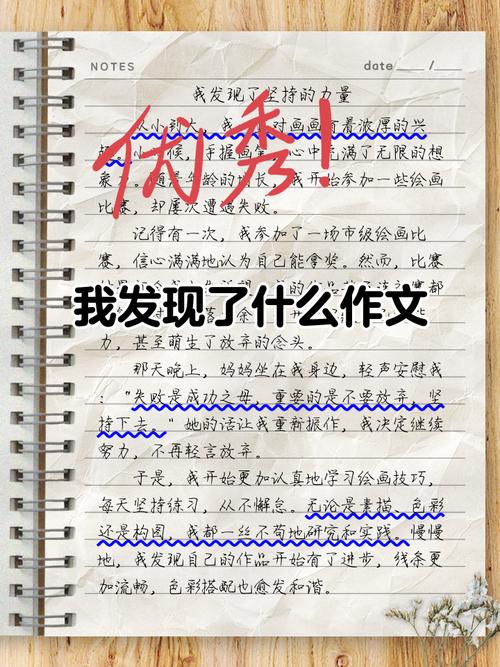 NOTES
date /
我发现了坚持的力量
优秀!
从小到大,我 对画画有着浓厚的兴
趣。小时候,手握画笔,心中充满了无限的想
象。随着年龄的增长,我开始参加一些绘画
比赛,却屡次遭遇失败。
记得有一次,我参加了一场市级绘画比
赛,信心满满地认为自己能拿奖。然而,比赛
都
我发现了什么作文
力,甚至萌生了放弃的念头。
那天晚上,妈妈坐在我身边,轻声安慰我
:"失败是成功之母,重要的是不要放弃,坚
持下去。"她的话让我重新振作,我决定继续
努力,不再轻言放弃。
于是,我开始更加认真地学习绘画技巧,
每天坚持练习,从不懈怠。无论是素描、色彩
还是构图,我都一丝不苟地研究和实践。慢慢
地,我发现自己的作品开始有了进步,线条更
加流畅,色彩搭配也愈发和谐。